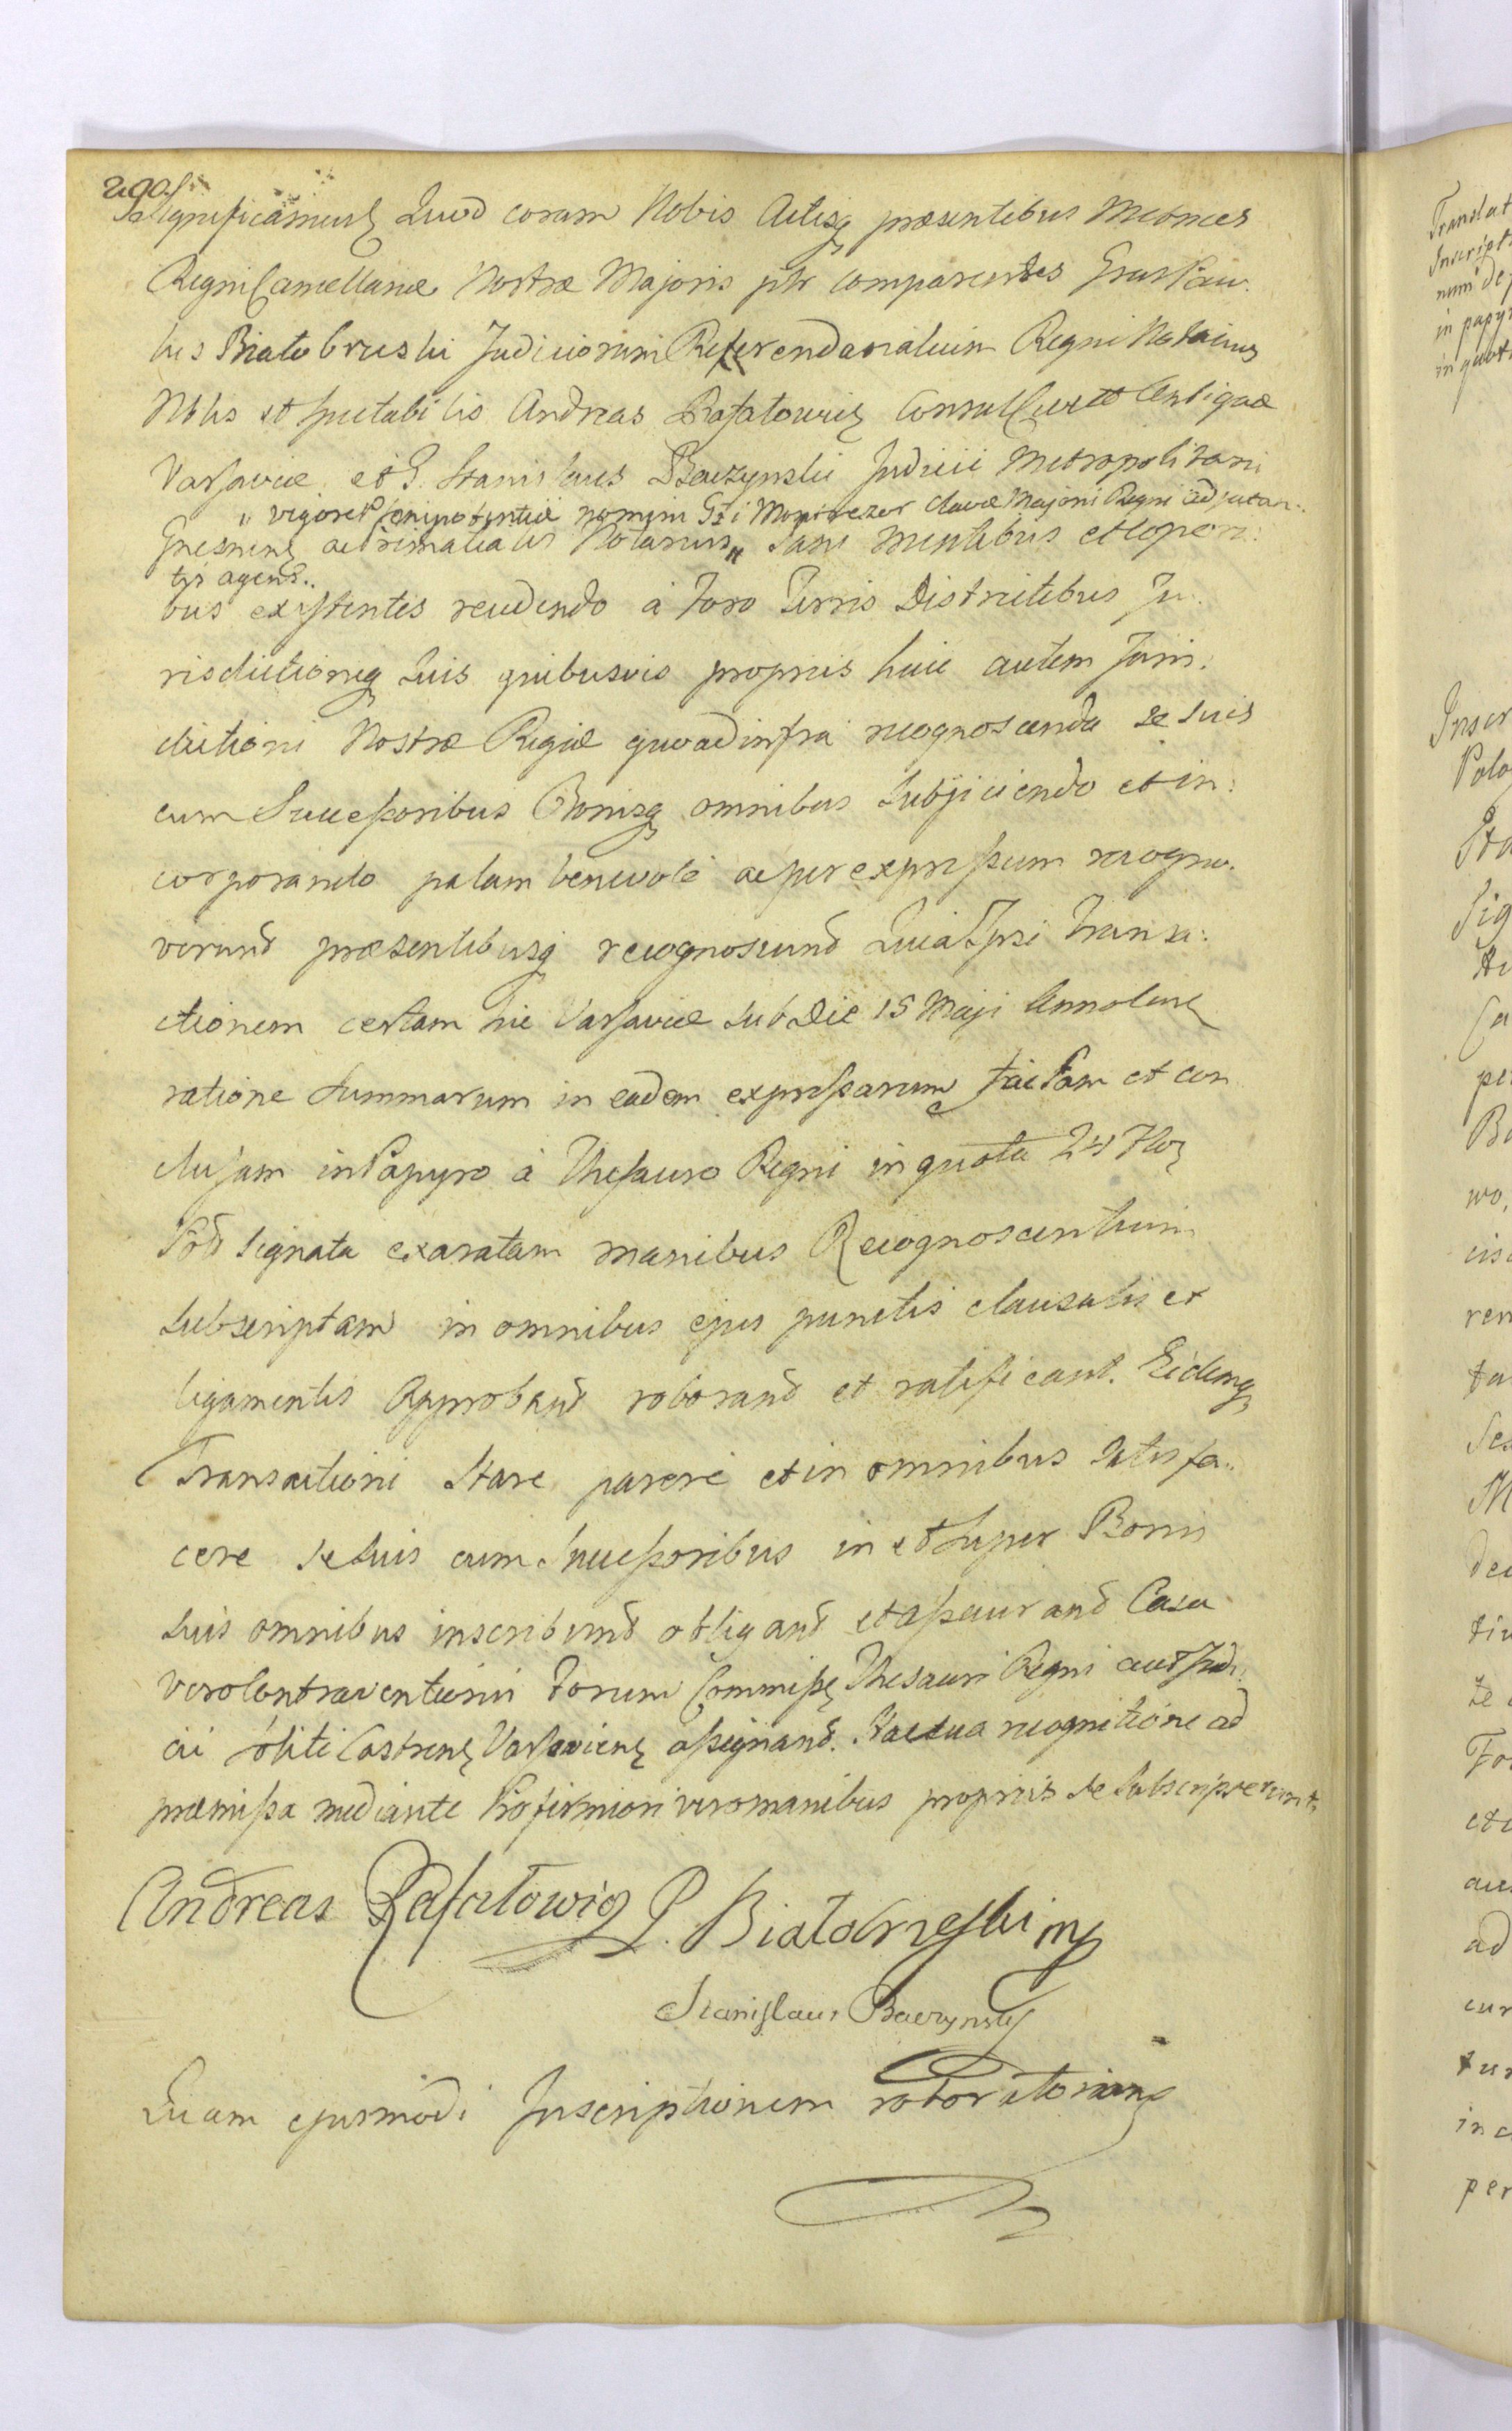 290
Significamus Quod coram Nobis Actisq præsentibus Metrices
Regni Cancellariæ Nostræ Majoris pttr comparentes Grus Pau.
lus Białobrzeski Judiciorum Referendarialium Regni Notarius
Nblis et spectabilis Andreas Rafałowicz Consul Cuittis Antiquæ
Varsaviæ et G. Stanislaus Baczynski Judicii Metropolitani
„ vigore Plenipotentiæ nomine Montrezor Clavæ Majoris Regni adjutan..
Gnesnens ac Primatialis Notarius „ Sani mentibus et Corpori:
tis agens..
bus existentes recedendo à Foro Terris Districtibus Ju.
risdictionq Suis quibusvis propriis huic autem Juris:
dictioni Nostræ Regiæ quoad infra recognoscenda se suis
cum Successoribus Bonisq omnibus subjiciendo et in:
corporando palam benevolè ac per expressum recogno.
verunt præsentibusq recognoscunt Quia Ipsi Transa:
ctionem certam hic Varsaviæ sub Die 15 Maji Anno
ratione Summarum in eadem expressarum factam et con
clusam in Papyro à Thesauro Regni in quota 24 Flor
Pol signata exaratam manibus Recognoscentium
subscriptam in omnibus ejus punctis clausulis et
ligamentis Approbant roborant et ratificant. Eidemq
Transactioni Stare parere et in omnibus satisfa..
cere se suis cum Successoribus in et super Bonis
suis omnibus inscribunt obligant et assecurant Casu
vero Contraventionis Forum Commiss Thesauri Regni aut Judi.
cii Castrens Varsaviens assignant. recognitione ad
præmissa mediante Pro firmiori vero manibus propriis se subscripserunt
Andreas Rafałowicz P. Białobrzeski mp
Stanislaus Baczynski
Quam ejusmodi Inscriptionem roboritoriam